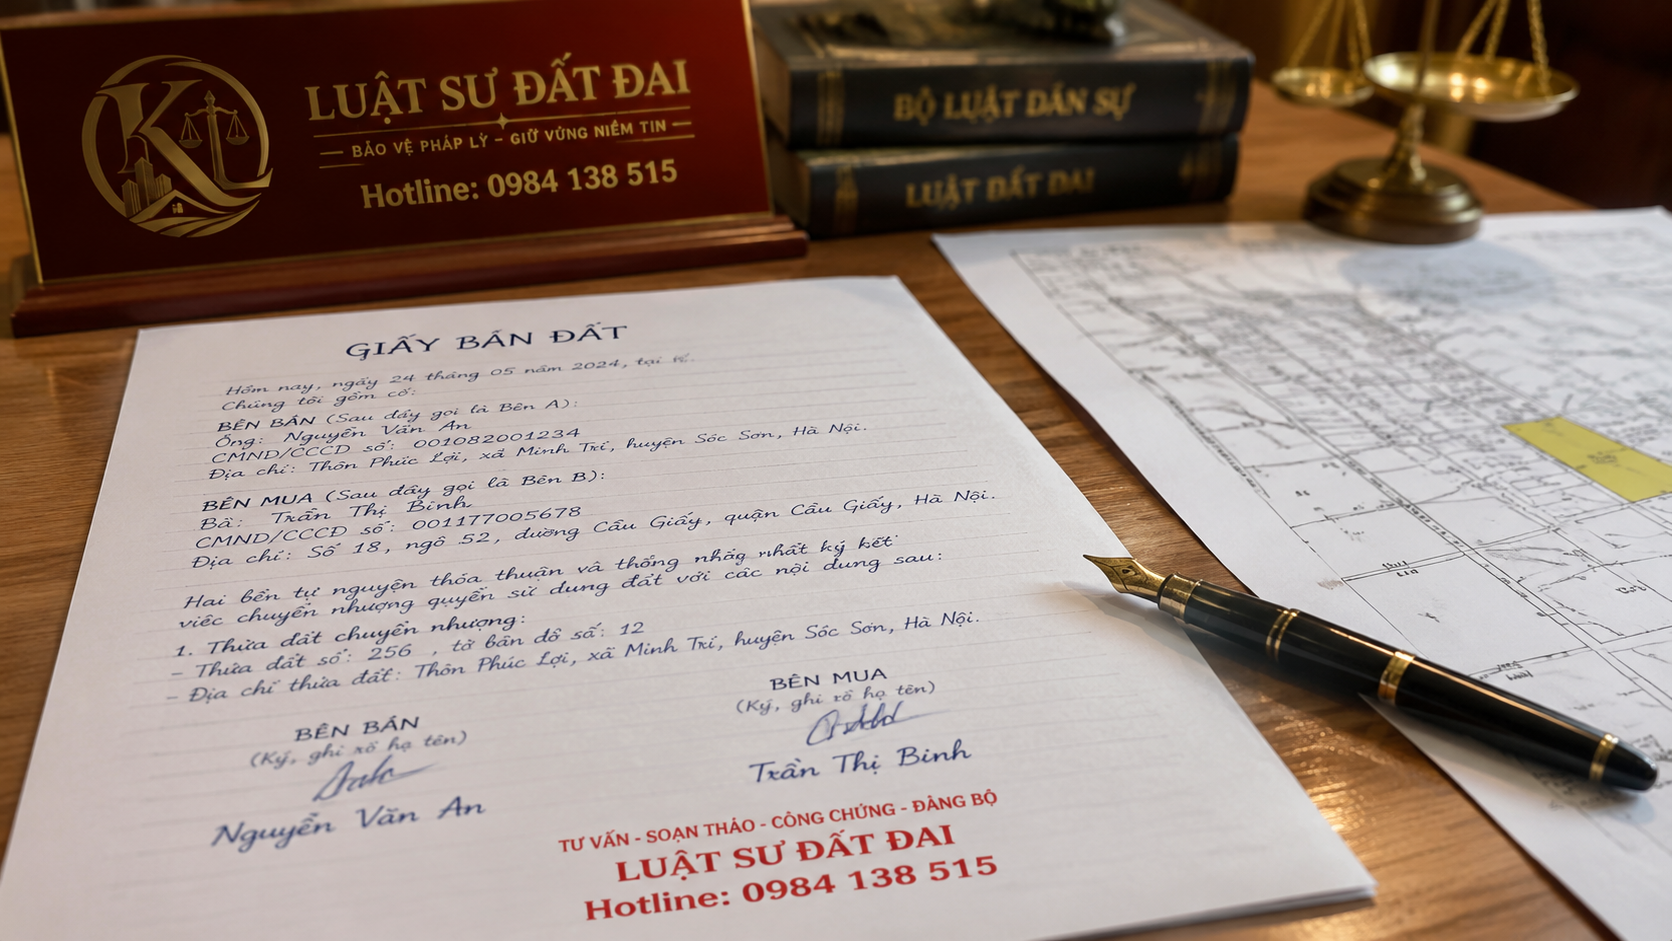 LUẬT SƯ ĐẤT ĐAI
BẢO VỆ PHÁP LÝ - GIỮ VỮNG NIỀM TIN
Hotline: 0984 138 515
BỘ LUẬT DÂN SỰ
LUẬT ĐẤT ĐAI
GIẤY BÁN ĐẤT
Hôm nay, ngày 24 tháng 05 năm 2024, tại
Chúng tôi gồm có:
BÊN BÁN (Sau đây gọi là Bên A):
Ông: Nguyễn Văn An
CMND/CCCD số: 001082001234
Địa chỉ: Thôn Phúc Lợi, xã Minh Trí, huyện Sóc Sơn, Hà Nội.
BÊN MUA (Sau đây gọi là Bên B):
Bà: Trần Thị Bình
CMND/CCCD số: 001177005678
Địa chỉ: Số 18, ngõ 52, đường Cầu Giấy, quận Cầu Giấy, Hà Nội.
Hai bên tự nguyện thỏa thuận và thống nhãg nhất ký kết
việc chuyển nhượng quyền sử dụng đất với các nội dung sau:
1. Thửa đất chuyển nhượng:
- Thửa đất số: 256 , tờ bản đồ số: 12
- Địa chỉ thửa đất: Thôn Phúc Lợi, xã Minh Trí, huyện Sóc Sơn, Hà Nội.
BÊN BÁN
(Ký, ghi rõ họ tên)
Nguyễn Văn An
BÊN MUA
(Ký, ghi rõ họ tên)
Trần Thị Bình
TƯ VẤN - SOẠN THẢO - CÔNG CHỨNG - ĐĂNG BỘ
LUẬT SƯ ĐẤT ĐAI
Hotline: 0984 138 515